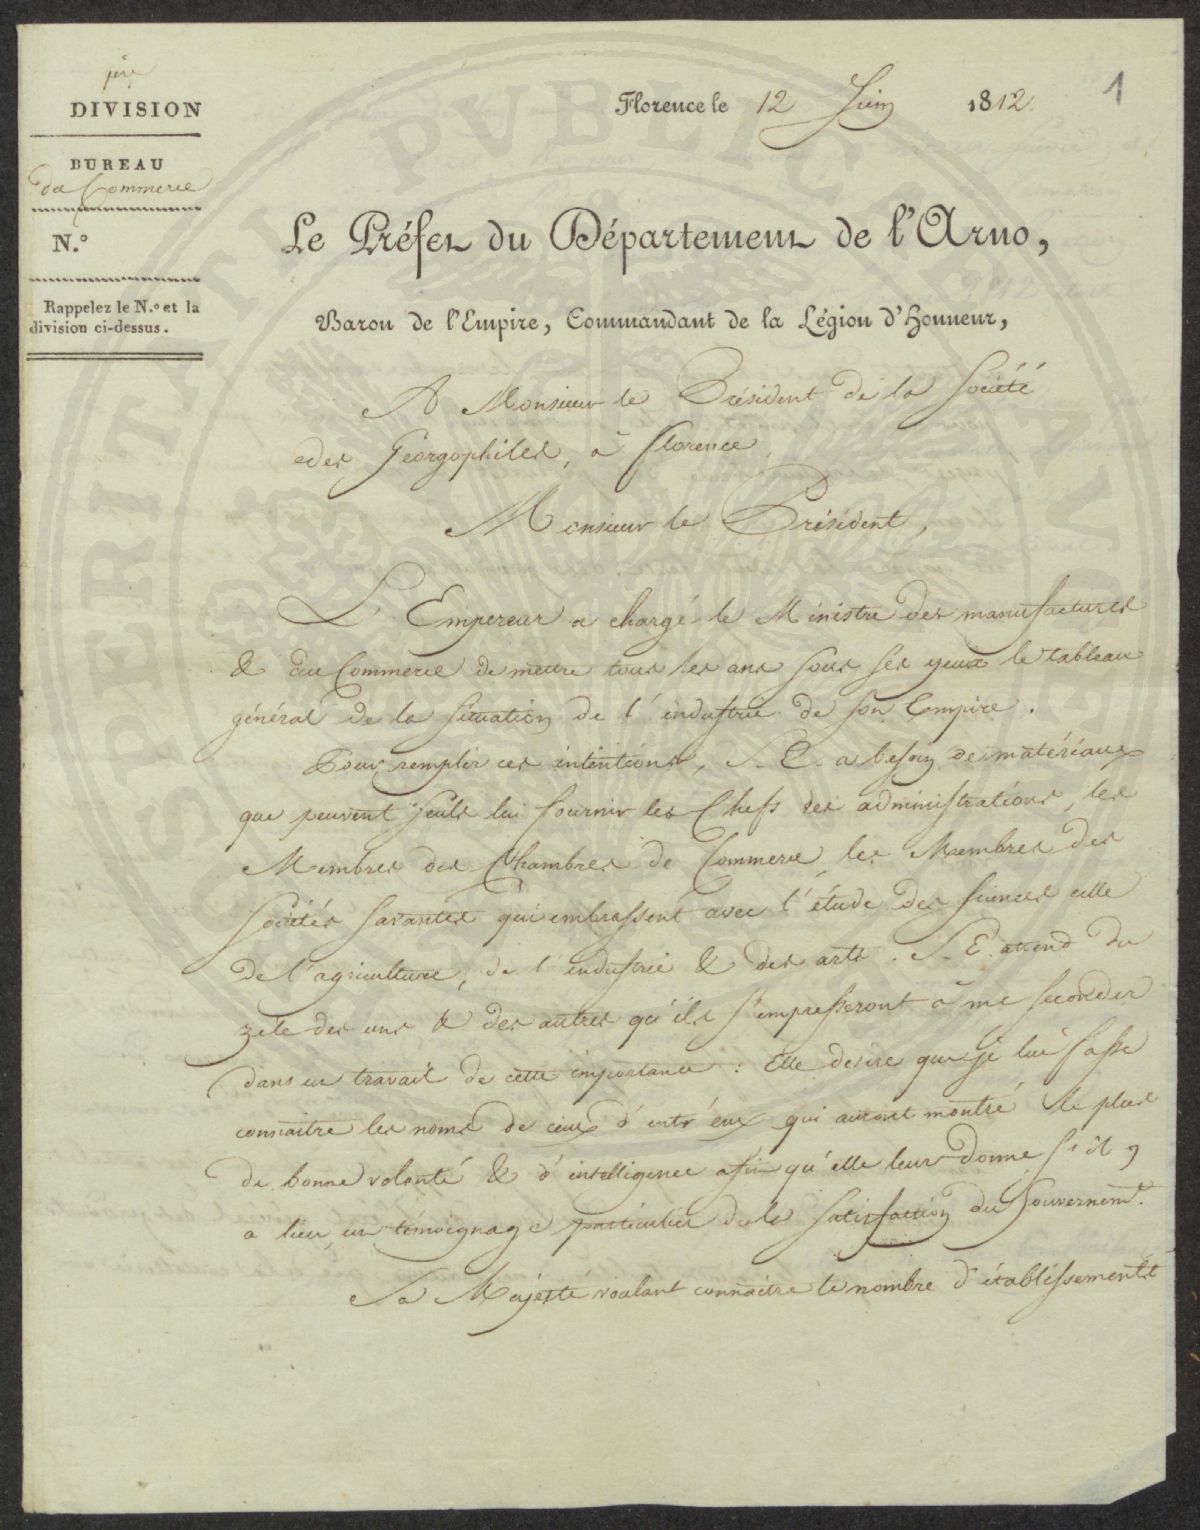 1ère
DIVISION
BUREAU
du Commerce
N.º
Rappelez le N.º et la
division ci-dessus.
Florence le 12 Juin 1812.
1
Le Préfet du Département de l'Arno,
Baron de l'Empire, Commandant de la Légion d'Honneur,
A Monsieur le Président de la Société
des Géorgophiles, à Florence.
Monsieur le Président,
L'Empereur a chargé le Ministre des manufactures
& du Commerce de mettre tous les ans sous ses yeux le tableau
général de la situation de l'industrie de son Empire.
Pour remplir ces intentions, S. E. a besoin de matériaux
que peuvent seuls lui fournir les Chefs des administrations, les
Membres des Chambres de Commerce, les Membres des
Sociétés savantes qui embrassent avec l'étude des sciences celle
de l'agriculture, de l'industrie & des arts. S. E. attend du
zèle des uns & des autres qu'ils s'empresseront à me seconder
dans un travail de cette importance : Elle desire que je lui fasse
connaitre les noms de ceux d'entr'eux qui auront montré le plus
de bonne volonté & d'intelligence afin qu'elle leur donne s'il y
a lieu un témoignage particulier de la satisfaction du Gouvernemt.
Sa Majesté voulant connaitre le nombre d'établissements